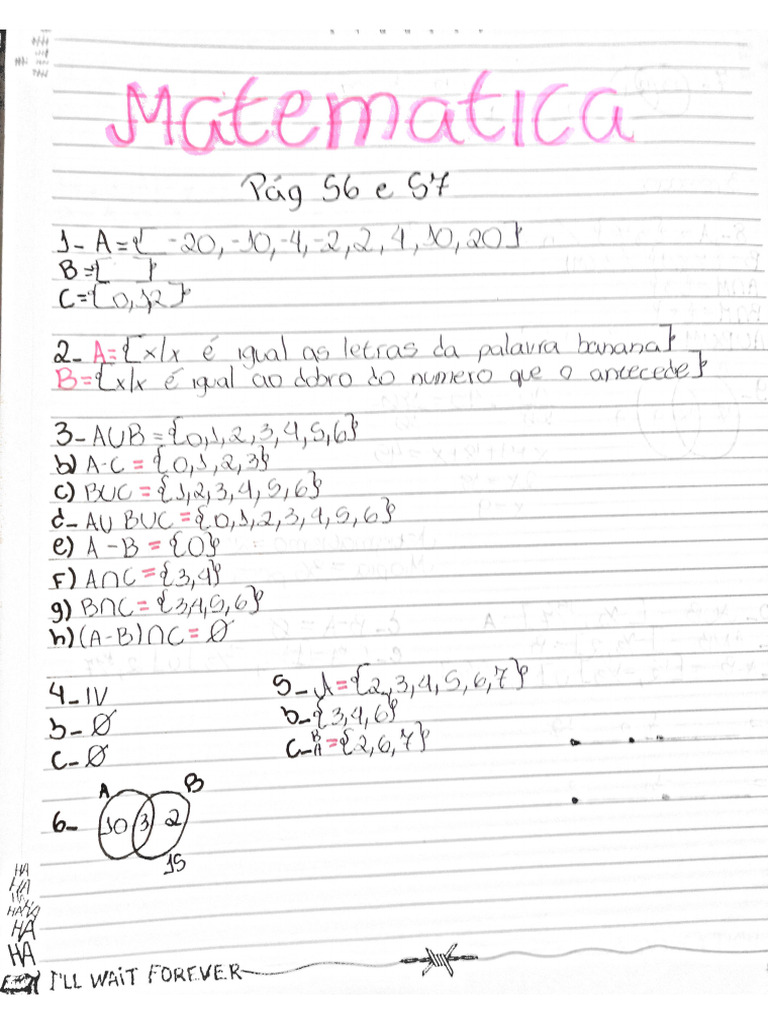 Matematica
Pág 56 e 57
1- A={ -20, -10, -4, -2, 2, 4, 10, 20}
B={ }
C={0,1,2}
2- A={x/x é igual as letras da palavra banana}
B={x/x é igual ao dobro do numero que o antecede}
3- AUB={0,1,2,3,4,5,6}
b) A-C={0,1,2,3}
c) BUC={1,2,3,4,5,6}
d- AU BUC={0,1,2,3,4,5,6}
e) A-B={0}
F) A∩C={3,4}
g) B∩C={3,4,5,6}
h) (A-B)∩C=Ø
4- IV
b- Ø
c- Ø
5- A={2,3,4,5,6,7}
b- {3,4,6}
c- B A={2,6,7}
A B
6- 10 3 2
15
HA
HA
HAHA
HA
HA
I'LL WAIT FOREVER